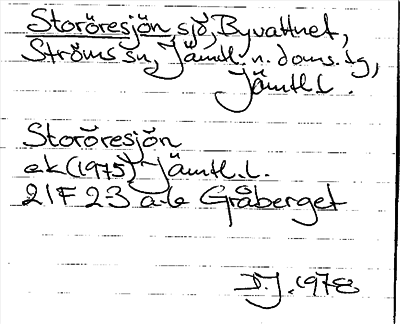 Storöresjön, sjö, Byvattnet,
Ströms sn, Jämtl. n. doms. tg,
Jämtl. l.
Storöresjön
ek (1975) Jämtl. l.
21F 2-3 a-b Gråberget
D.J. 1978